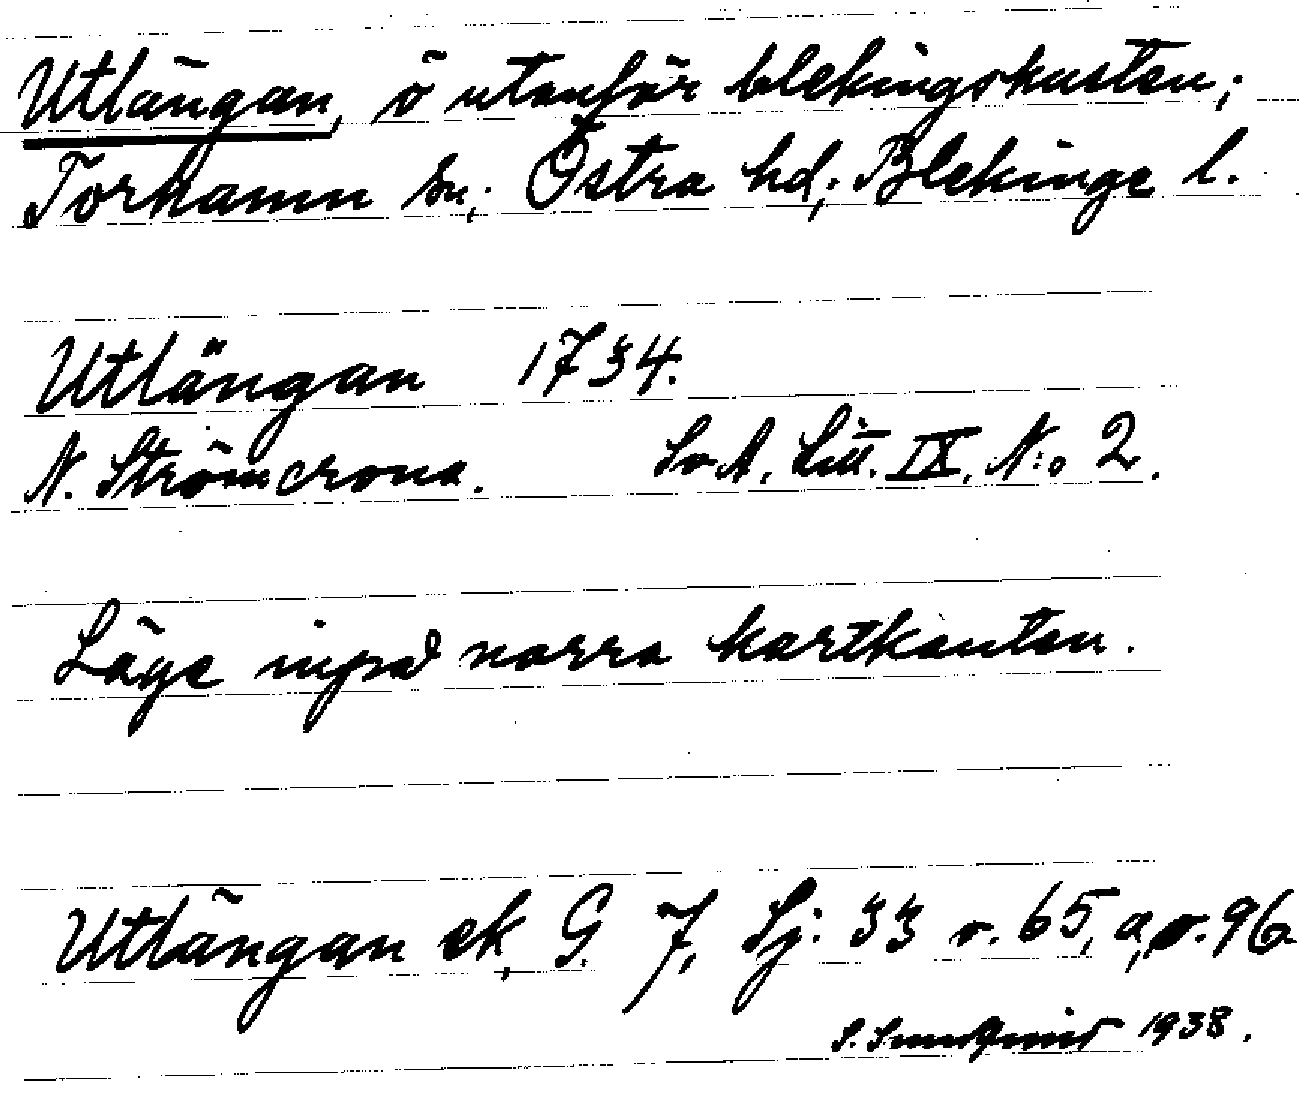 Utlängan, ö utanför blekingskusten;
Torhamn sn; Östra hd; Blekinge l.
Utlängan 1734.
N. Strömcrona. SvA, Litt. IX, N:o 2.
Läge inpå norra kartkanten.
Utlängan ek, G. 7, Sj: 33 v. 65, a, 96
S. 1938.